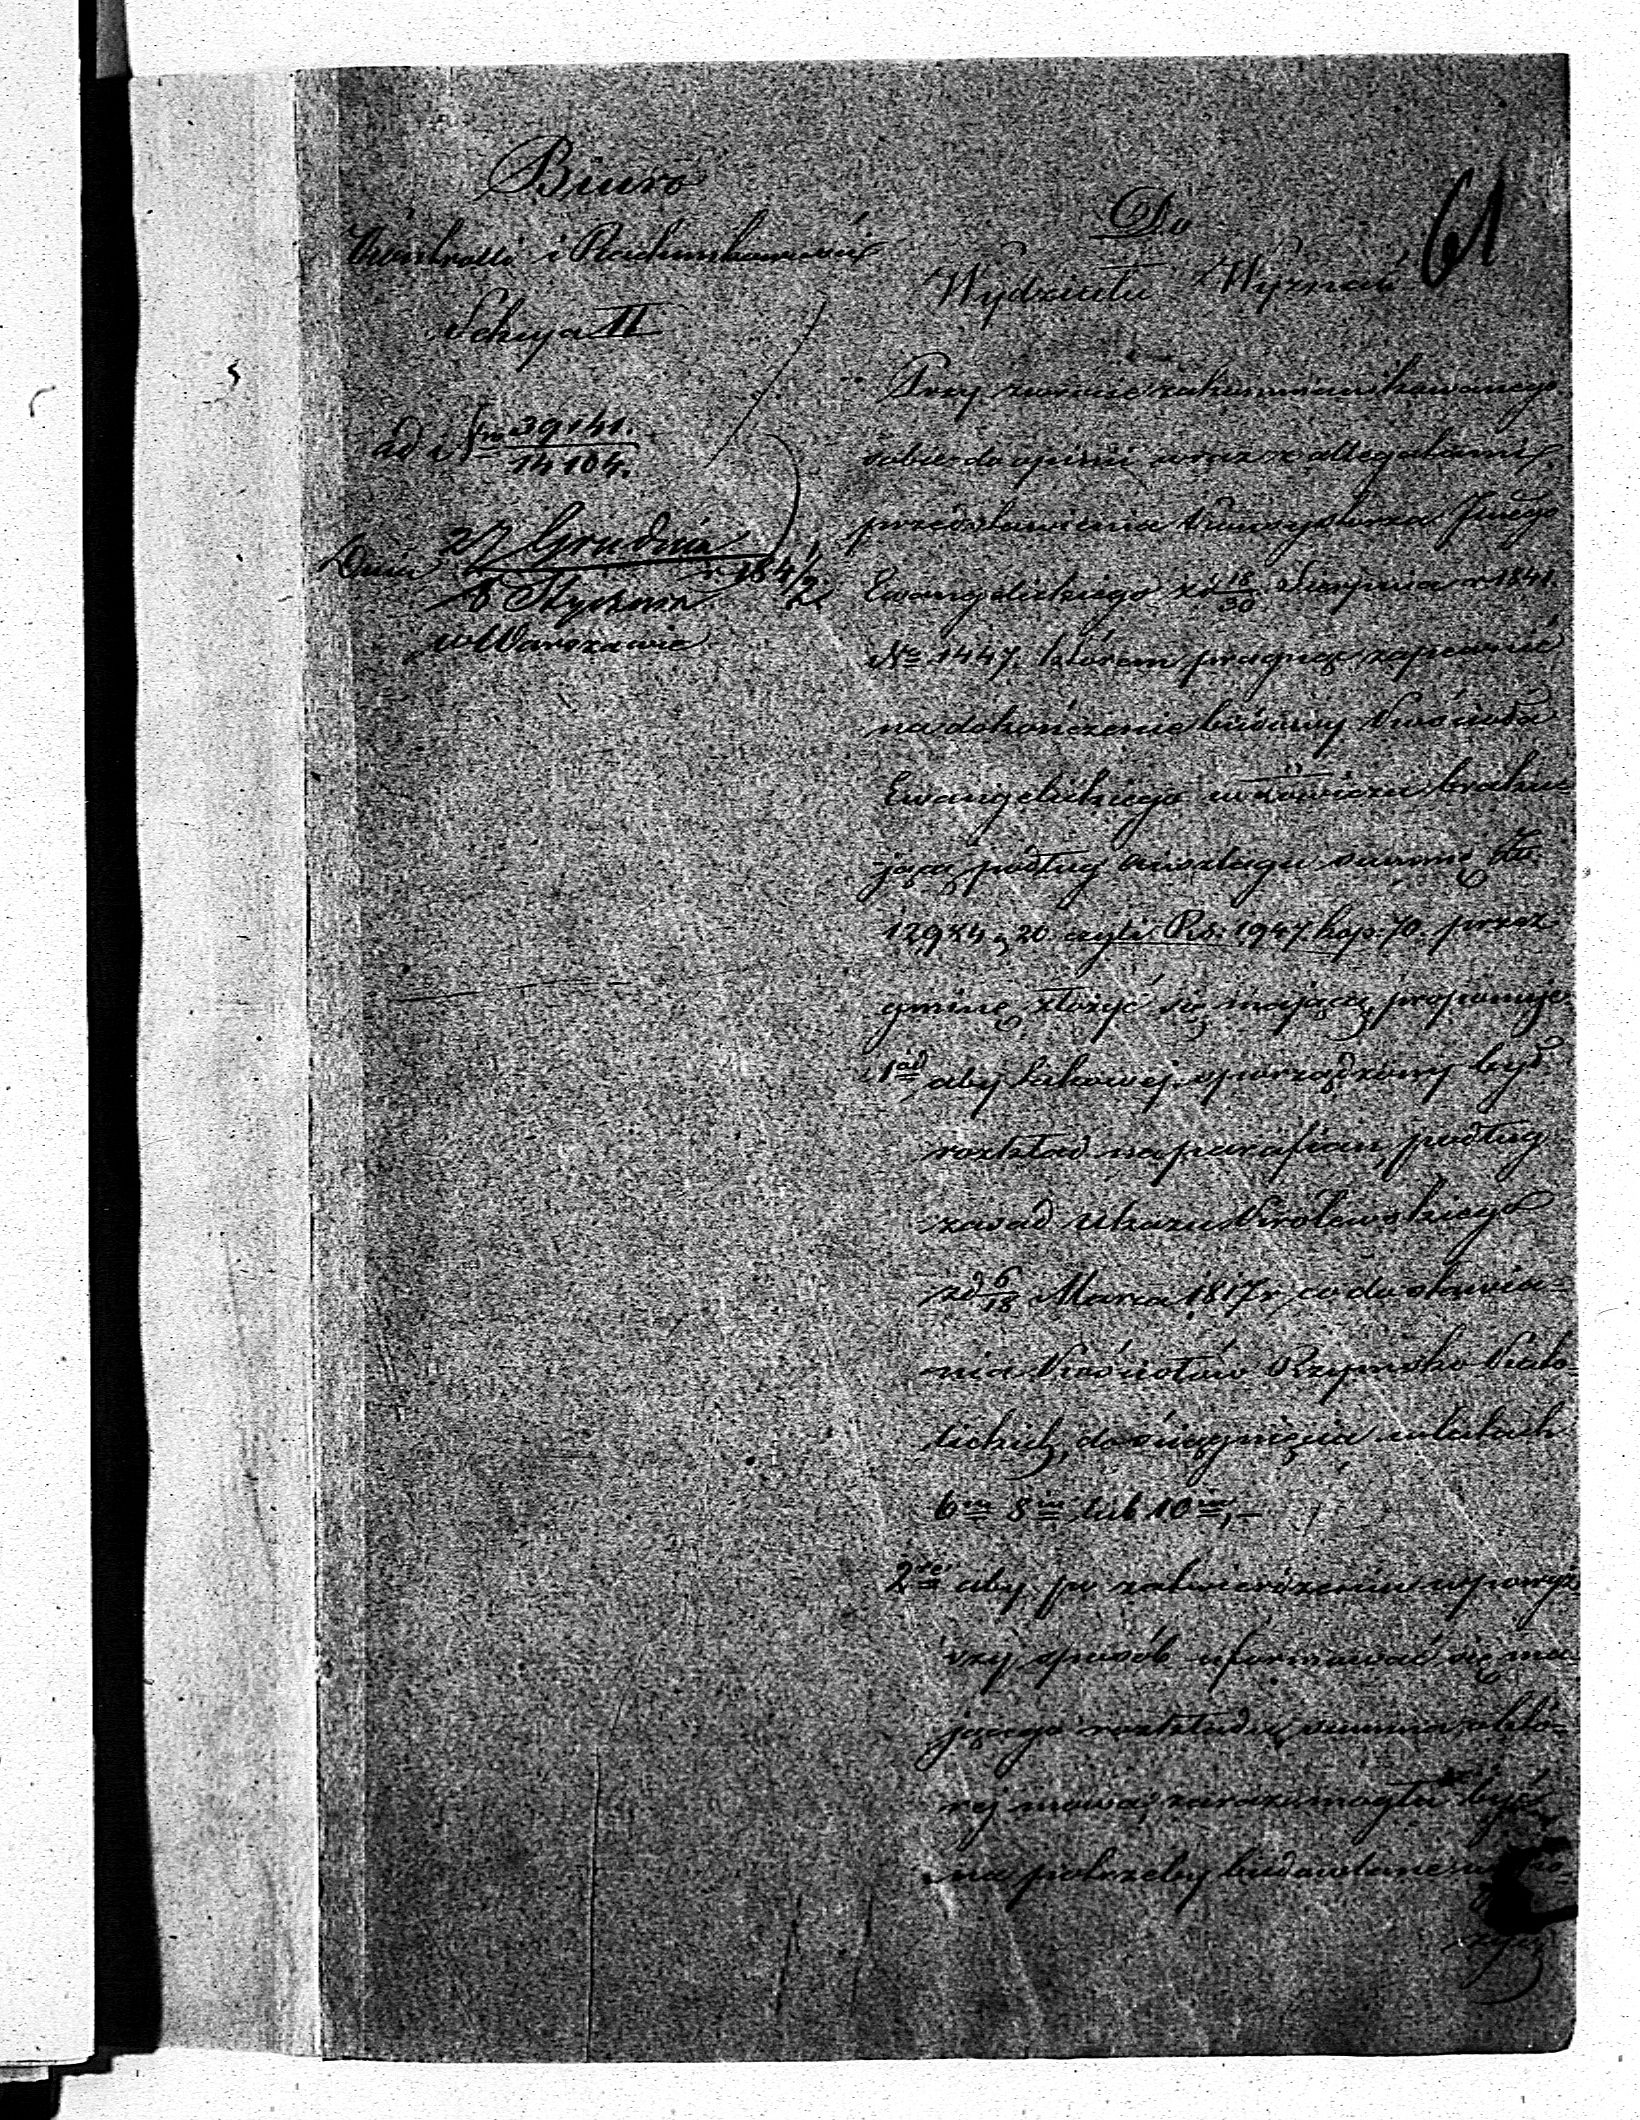 Biuro
Kontrolli i Rachunkowości
Sekcya II
ad Nrm 39141.
14104.
Dnia 27 Grudnia
8 Stycznia r. 184½
w Warszawie
61
Do
Wydziału Wyznań
Przy zwrocie zakommunikowanego
sobie do opinii wraz z allegatami
przedstawienia Konsystorza Jnego
Ewangelickiego z d 18/30 Sierpnia r. 1841.
No 1447. którem pragnąc zapewnić
na dokończenie budowy Kościoła
Ewangelickiego w Łowiczu braku=
jącą podług anszlagu summę Złt
12984, 20 czyli Rs: 1947. kop: 70. przez
gminę złożyć się mającą, proponuje
1od aby takowej sporządzony był
rozkład na parafian, podług
zasad Ukazu Królewskiego
z d 6/18 Marca 1817 r, co do stawia=
nia Kościołów Rzymsko Kato=
lickich, do ściągnięcia w latach
6m 8m lub 10m, –
2re aby po zatwierdzeniu w powyż
szy sposób uformować się ma
jącego rozkładu, summa o któ=
rej mowa, zaraz mogła być
na potrzeby budowlane